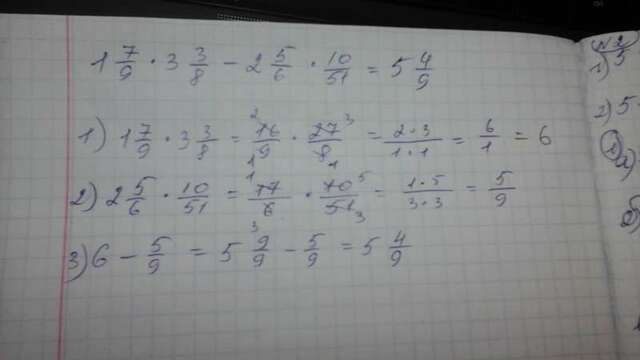 1 7/9 · 3 3/8 − 2 5/6 · 10/51 = 5 4/9
1) 1 7/9 · 3 3/8 = 16/9 · 27/8 = 2·3/1·1 = 6/1 = 6
2) 2 5/6 · 10/51 = 17/6 · 10/51 = 1·5/3·3 = 5/9
3) 6 − 5/9 = 5 9/9 − 5/9 = 5 4/9
1)
2) 5